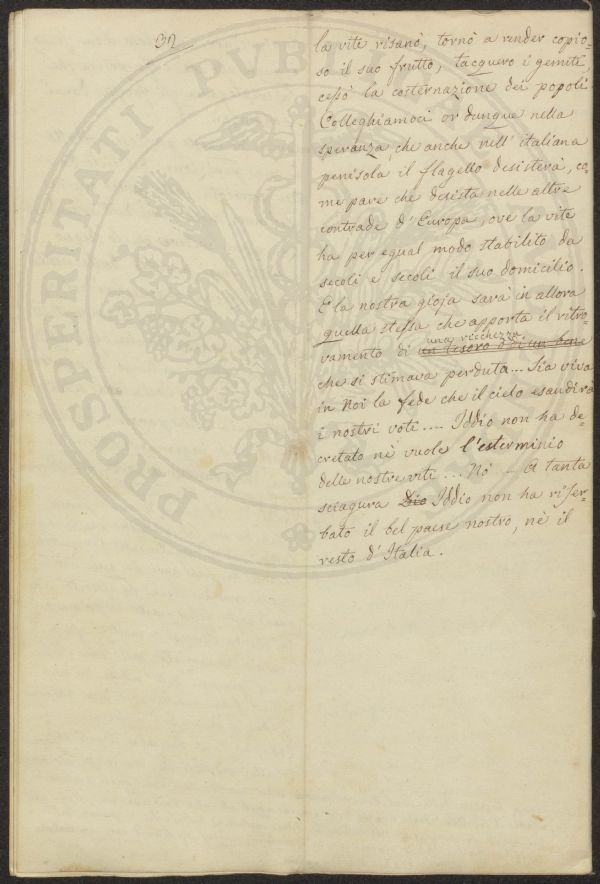 32
la vite risanò, tornò a render copio-
so il suo frutto, tacquero i gemiti,
cessò la costernazione dei popoli.
Colleghiamoci or dunque nella
speranza, che anche nell' italiana
penisola il flagello desisterà, co-
me pare che desista nelle altre
contrade d' Europa, ove la vite
ha per egual modo stabilito da
secoli e secoli il suo domicilio.
E la nostra gioja sarà in allora
quella stessa che apporta il ritro-
una ricchezza
vamento di un tesoro o di un bene
che si stimava perduta... Sia viva
in Noi la fede che il cielo esaudirà
i nostri voti.... Iddio non ha de-
cretato nè vuole l'esterminio
delle nostre viti... No... A tanta
sciagura Dio Iddio non ha riser-
bato il bel paese nostro, nè il
resto d' Italia.
PROSPERITATI PUBL